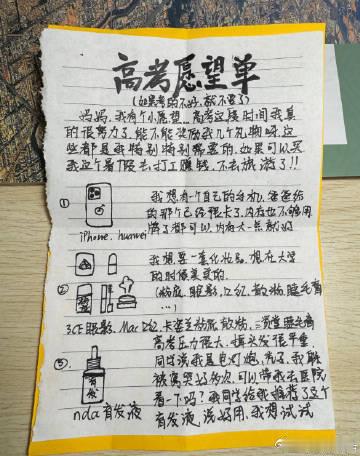 高考愿望单
(如果考的不好,就不要了)
妈妈,我有个小愿望...高考这段时间我真
的很努力了,能不能奖励我几个礼物呀,这
些都是我特别特别想要的,如果可以买
我这个暑假去打工赚钱,不去旅游了!!
① 我想有一个自己的手机,爸爸给
的那个已经很卡了,内存也不够用
牌子都可以,内存大一点就好
iPhone. huawei
② 我想要一套化妆品,想在大学
的时候美美的.
(粉底,眼影,口红,散粉,睫毛膏
...)
3CE眼影,Mac口红,卡姿兰粉底,散粉,
睫毛膏
③. 高考压力很大,掉头发很严重,
同学说我是电灯泡,秃了,我
被 哭好多次,可以带我去医院
看一下吗?我同学给我推荐了这个
育发液,说好用,我想试试
育发
nda育发液